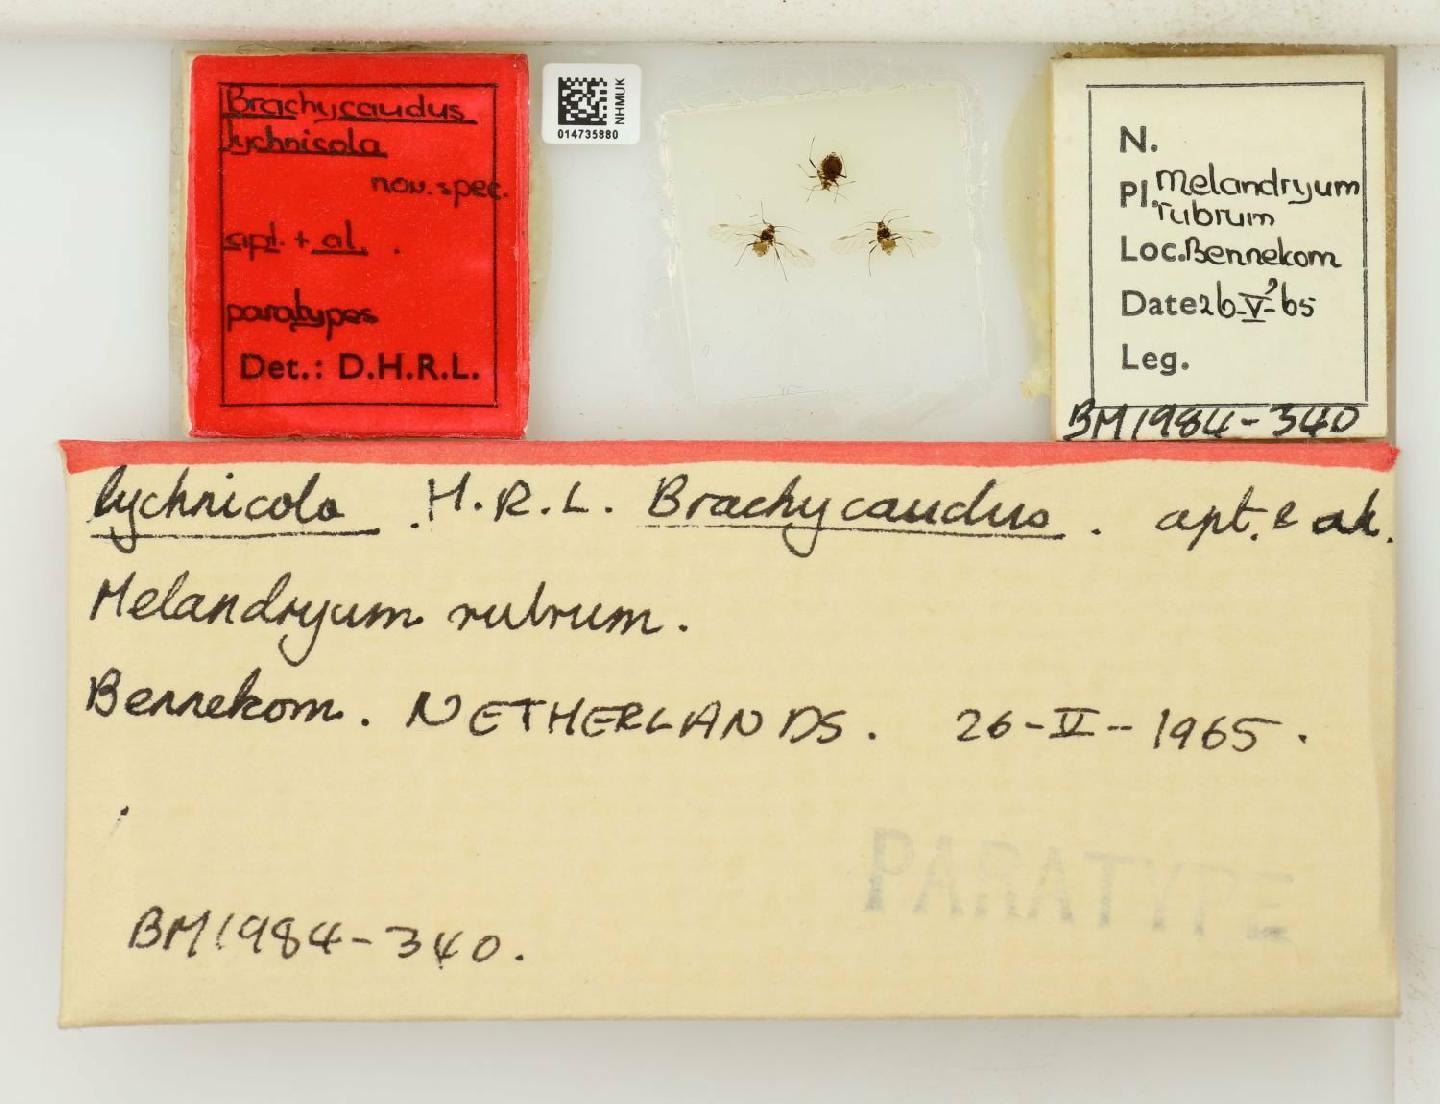 Brachycaudus
lychnicola
nov. spec.
apt. + al.
paratypes
Det.: D.H.R.L.
NHMUK
014735880
N.
Pl. Melandryum
rubrum
Loc. Bennekom
Date 26-V-'65
Leg.
BM1984-340
lychnicola . H.R.L. Brachycaudus . apt. & al.
Melandryum rubrum .
Bennekom . NETHERLANDS . 26-V-1965 .
PARATYPE
BM1984-340 .